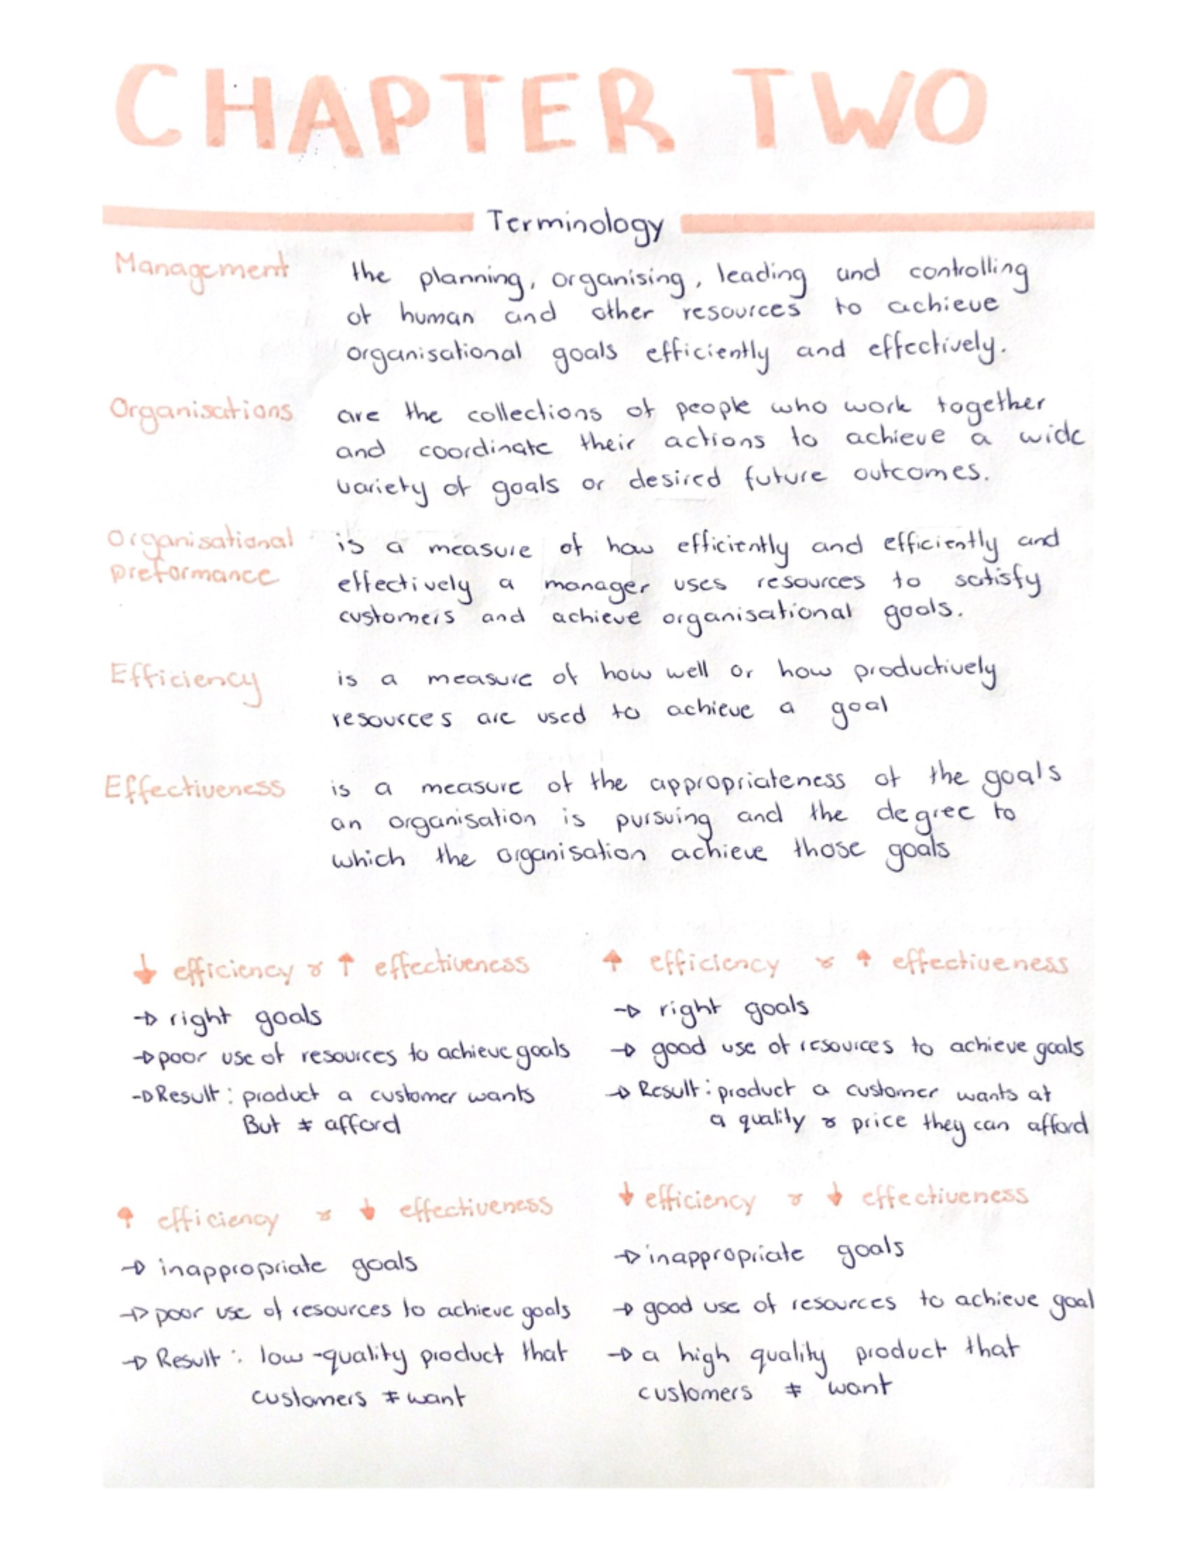 CHAPTER TWO
Terminology
Management the planning, organising, leading and controlling
of human and other resources to achieve
organisational goals efficiently and effectively.
Organisations are the collections of people who work together
and coordinate their actions to achieve a wide
variety of goals or desired future outcomes.
Organisational is a measure of how efficiently and efficiently and
preformance effectively a manager uses resources to satisfy
customers and achieve organisational goals.
Efficiency is a measure of how well or how productively
resources are used to achieve a goal
Effectiveness is a measure of the appropriateness of the goals
an organisation is pursuing and the degree to
which the organisation achieve those goals
↓ efficiency & ↑ effectiveness
→ right goals
→ poor use of resources to achieve goals
→ Result: product a customer wants
But ≠ afford
↑ efficiency & ↑ effectiveness
→ right goals
→ good use of resources to achieve goals
→ Result: product a customer wants at
a quality & price they can afford
↑ efficiency & ↓ effectiveness
→ inappropriate goals
→ poor use of resources to achieve goals
→ Result: low-quality product that
customers ≠ want
↓ efficiency & ↓ effectiveness
→ inappropriate goals
→ good use of resources to achieve goal
→ a high quality product that
customers ≠ want